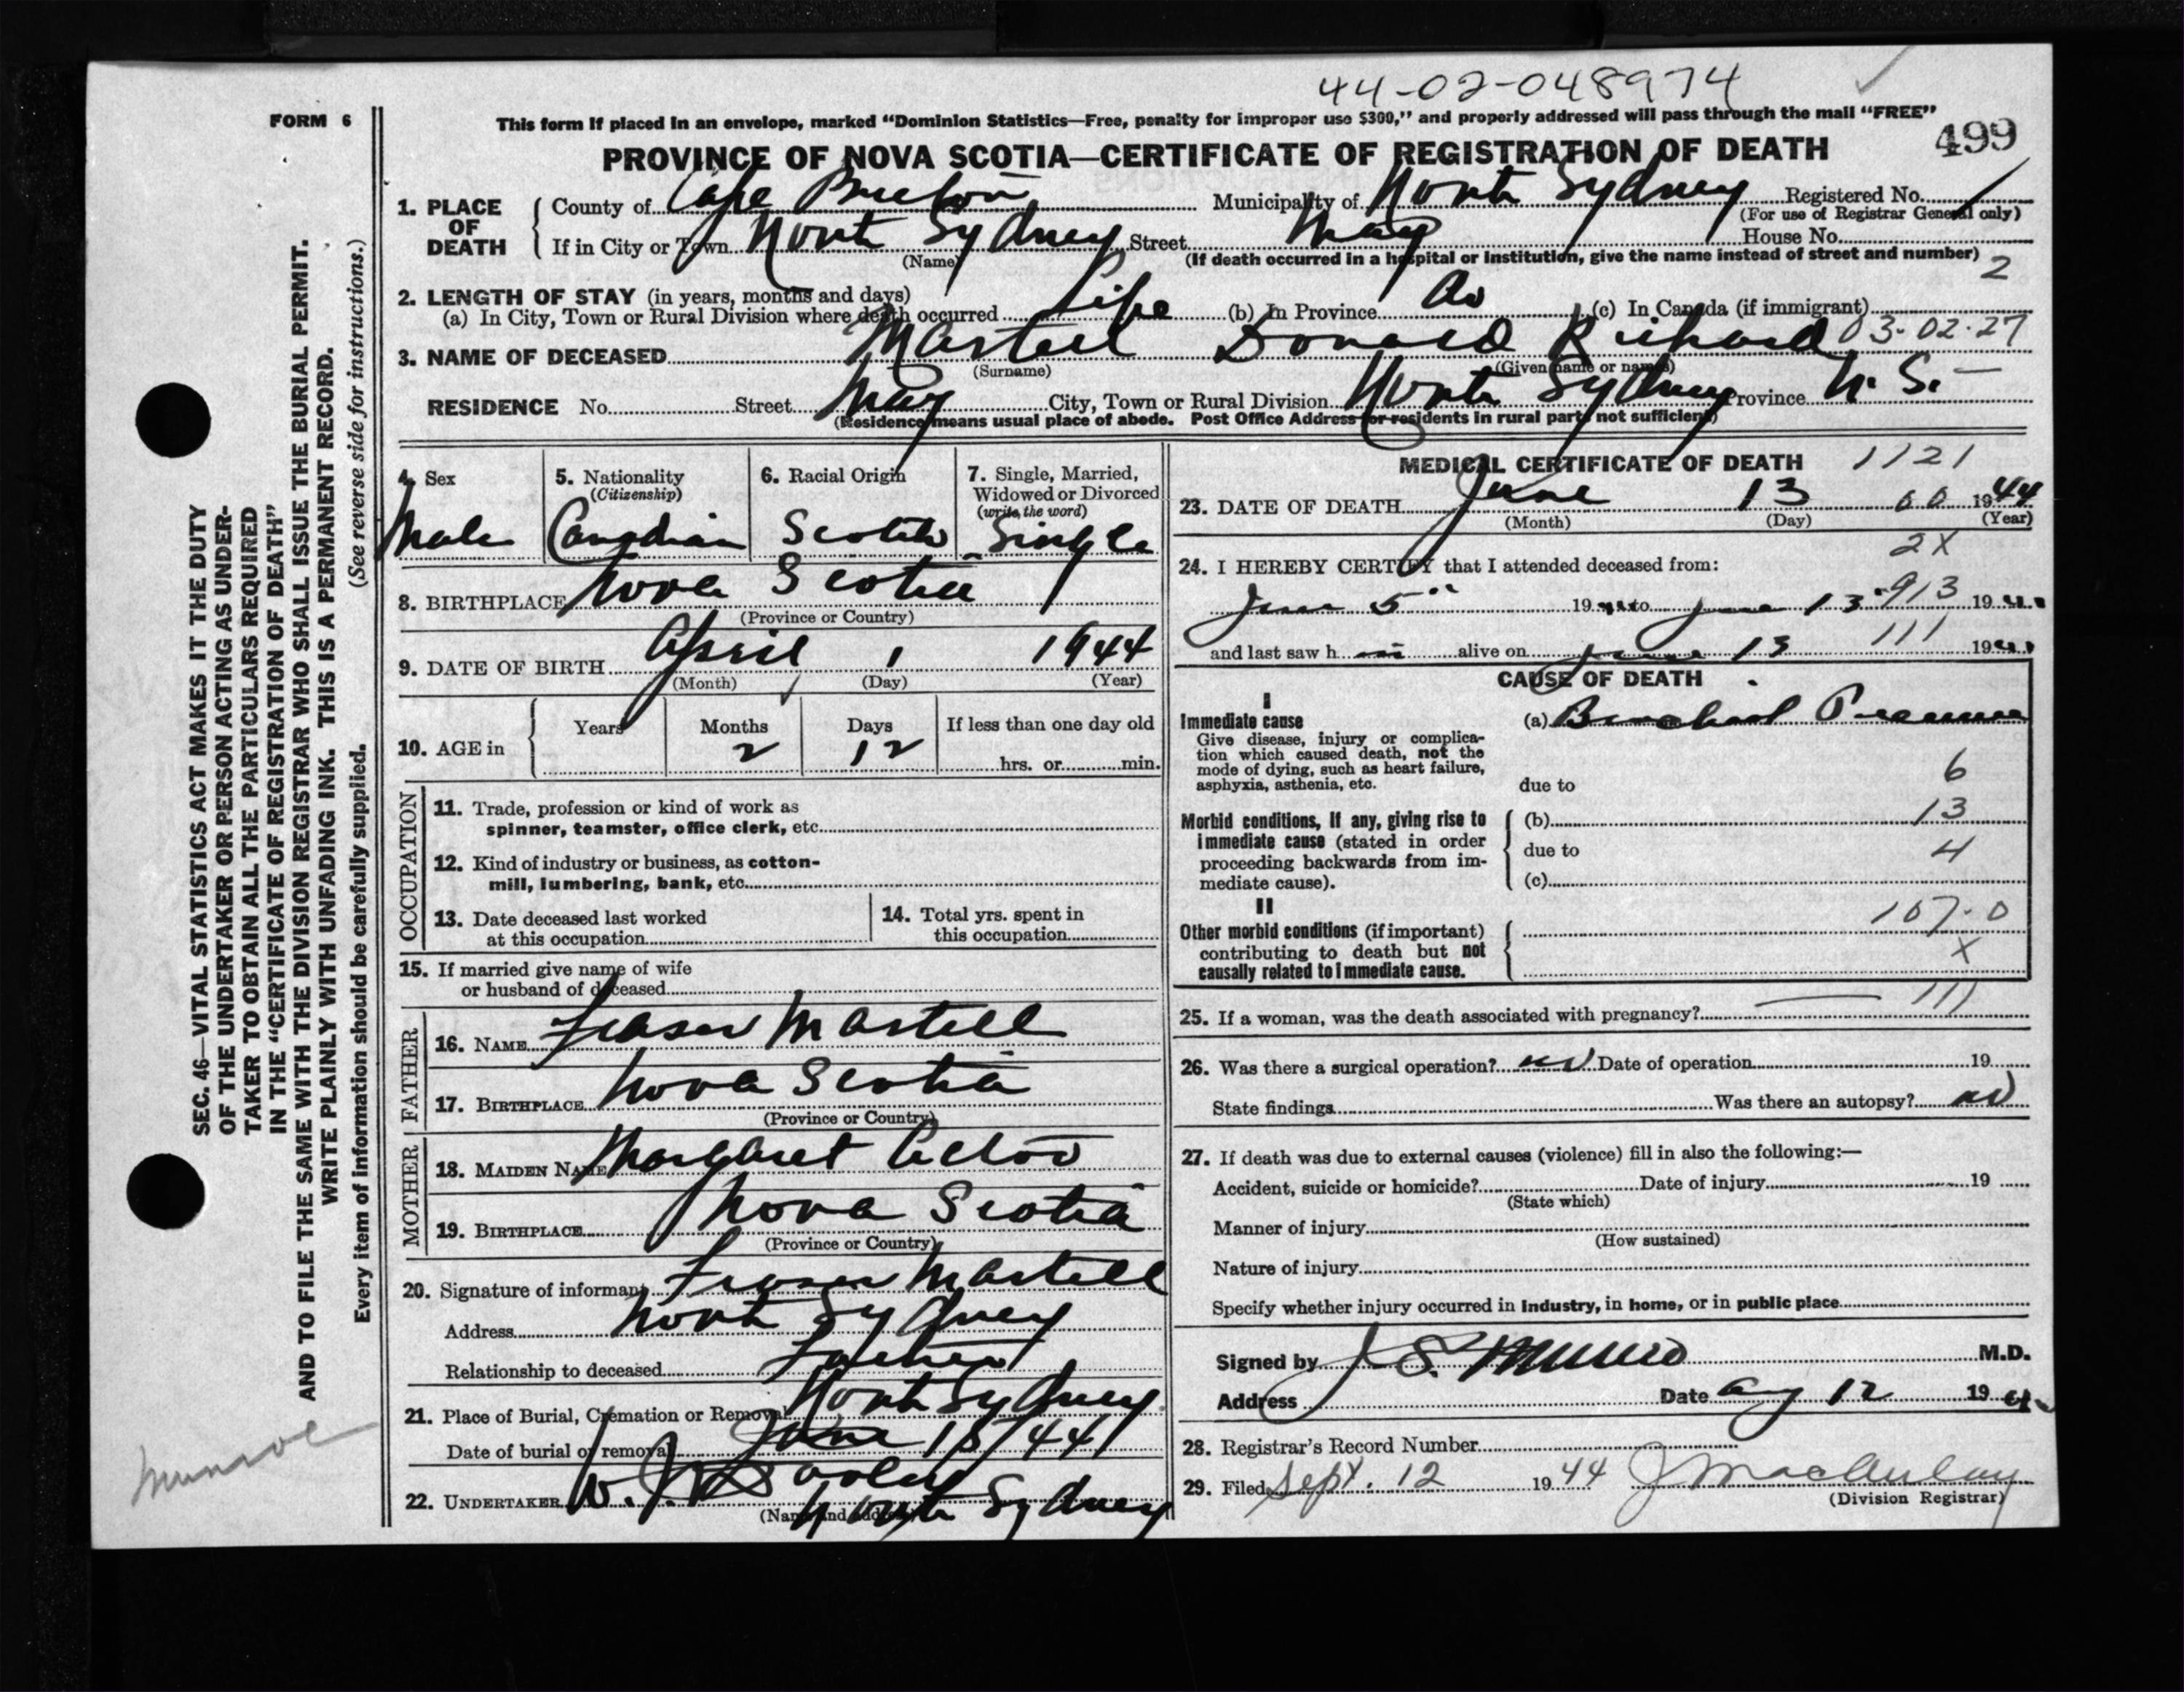 44-02-048974
FORM 6
This form if placed in an envelope, marked "Dominion Statistics—Free, penalty for improper use $300," and properly addressed will pass through the mail "FREE"
499
PROVINCE OF NOVA SCOTIA—CERTIFICATE OF REGISTRATION OF DEATH
1. PLACE OF DEATH
County of Cape Breton Municipality of North Sydney Registered No.
(For use of Registrar General only)
If in City or Town North Sydney Street May House No.
(Name) (If death occurred in a hospital or institution, give the name instead of street and number)
2
2. LENGTH OF STAY (in years, months and days)
(a) In City, Town or Rural Division where death occurred Life (b) In Province Do (c) In Canada (if immigrant)
3. NAME OF DECEASED Martell Donald Richard 03-02-27
(Surname) (Given name or names)
RESIDENCE No. Street May City, Town or Rural Division North Sydney Province N. S. —
(Residence means usual place of abode. Post Office Address for residents in rural parts not sufficient)
4. Sex
Male
5. Nationality
(Citizenship)
Canadian
6. Racial Origin
Scotch
7. Single, Married,
Widowed or Divorced
(write the word)
Single
8. BIRTHPLACE Nova Scotia
(Province or Country)
9. DATE OF BIRTH April 1 1944
(Month) (Day) (Year)
10. AGE in
Years Months Days If less than one day old
2 12 hrs. or min.
OCCUPATION
11. Trade, profession or kind of work as
spinner, teamster, office clerk, etc.
12. Kind of industry or business, as cotton-
mill, lumbering, bank, etc.
13. Date deceased last worked
at this occupation
14. Total yrs. spent in
this occupation
15. If married give name of wife
or husband of deceased
FATHER
16. NAME Fraser Martell
17. BIRTHPLACE Nova Scotia
(Province or Country)
MOTHER
18. MAIDEN NAME Margaret
19. BIRTHPLACE Nova Scotia
(Province or Country)
20. Signature of informant Fraser Martell
Address North Sydney
Relationship to deceased Father
21. Place of Burial, Cremation or Removal North Sydney
Date of burial or removal June 15/44
22. UNDERTAKER W. J. Dooley
(Name and address) North Sydney
MEDICAL CERTIFICATE OF DEATH 1121
23. DATE OF DEATH June 13 00 1944
(Month) (Day) (Year)
2X
24. I HEREBY CERTIFY that I attended deceased from:
June 5 1944 to June 13 913 1944
and last saw h im alive on June 13 111 1944
CAUSE OF DEATH
I
Immediate cause
Give disease, injury or complica-
tion which caused death, not the
mode of dying, such as heart failure,
asphyxia, asthenia, etc.
(a) Bronchial
6
due to
Morbid conditions, if any, giving rise to
immediate cause (stated in order
proceeding backwards from im-
mediate cause).
(b) 13
due to 4
(c)
II
Other morbid conditions (if important)
contributing to death but not
causally related to immediate cause.
107.0
X
111
25. If a woman, was the death associated with pregnancy?
26. Was there a surgical operation? no Date of operation 19
State findings Was there an autopsy? no
27. If death was due to external causes (violence) fill in also the following:—
Accident, suicide or homicide? Date of injury 19
(State which)
Manner of injury
(How sustained)
Nature of injury
Specify whether injury occurred in industry, in home, or in public place
Signed by J S. Munro M.D.
Address Date Aug 12 1944
28. Registrar's Record Number
29. Filed Sept. 12 1944 J MacAulay
(Division Registrar)
SEC. 46—VITAL STATISTICS ACT MAKES IT THE DUTY
OF THE UNDERTAKER OR PERSON ACTING AS UNDER-
TAKER TO OBTAIN ALL THE PARTICULARS REQUIRED
IN THE "CERTIFICATE OF REGISTRATION OF DEATH"
AND TO FILE THE SAME WITH THE DIVISION REGISTRAR WHO SHALL ISSUE THE BURIAL PERMIT.
WRITE PLAINLY WITH UNFADING INK. THIS IS A PERMANENT RECORD.
Every item of information should be carefully supplied. (See reverse side for instructions.)
Munroe